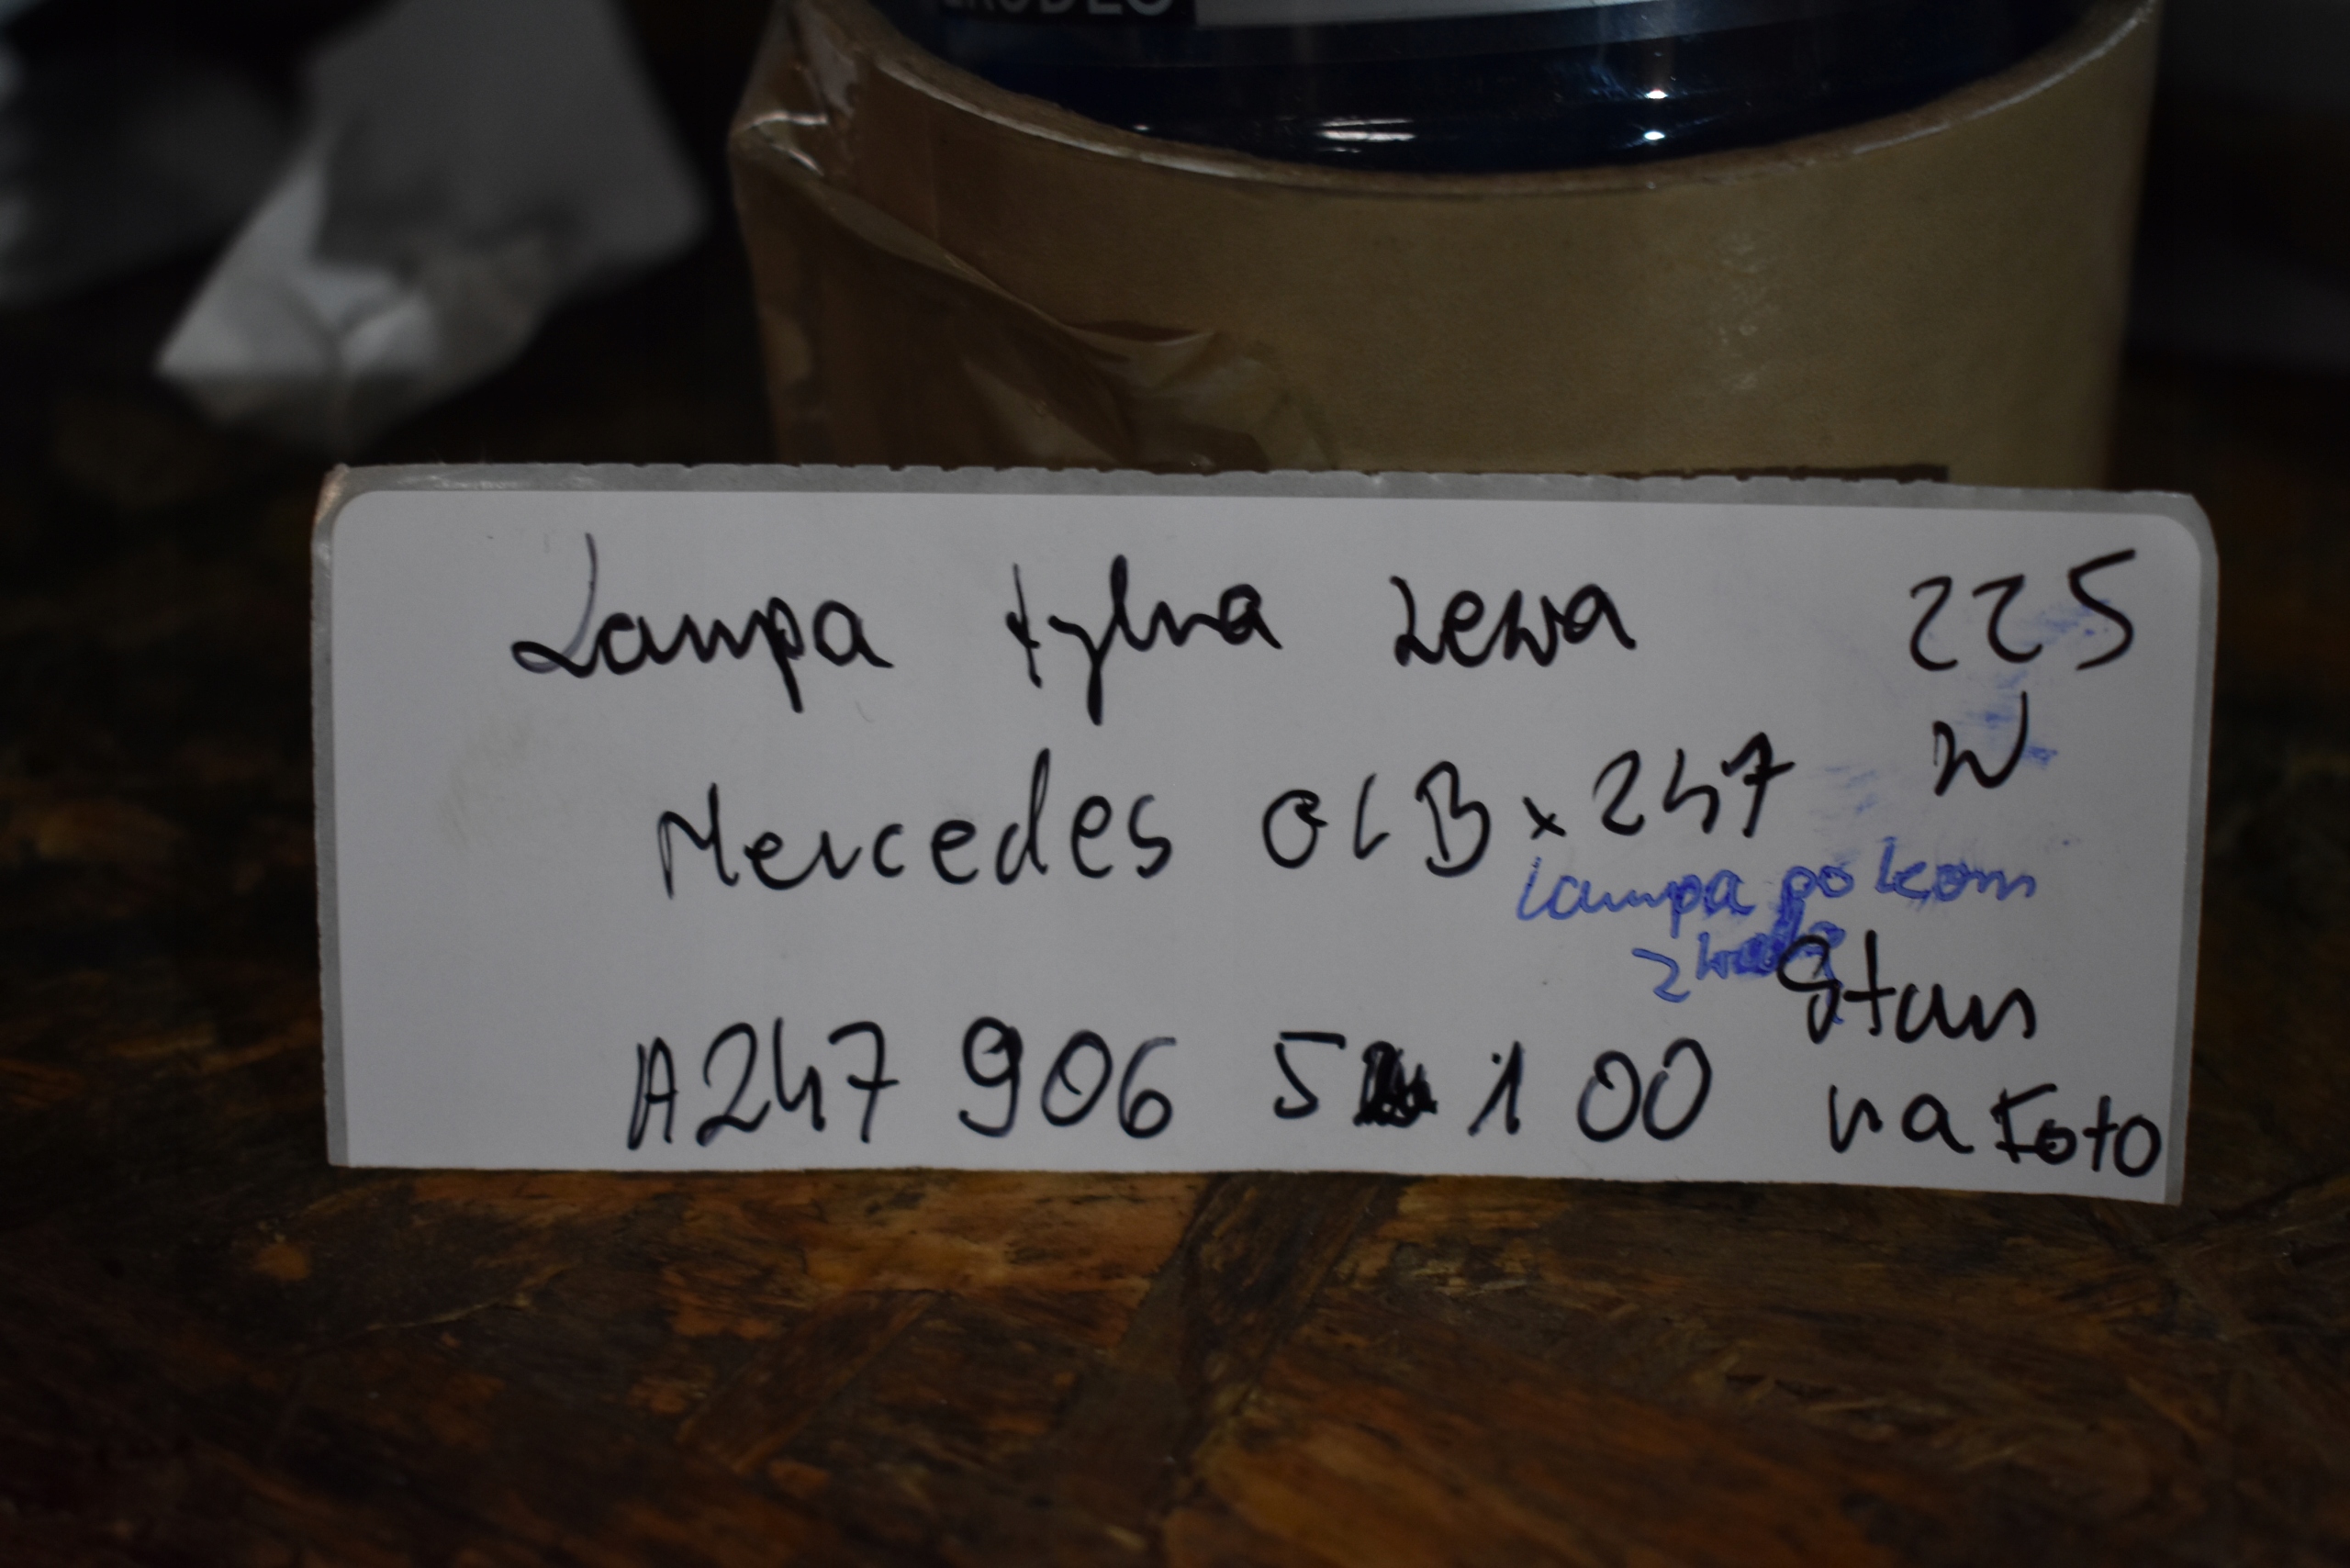 Lampa tylna Lewa 225
Mercedes GLB x247 W
Lampa po kom
z wodą
Stan
A247 906 5 1 00 na Foto